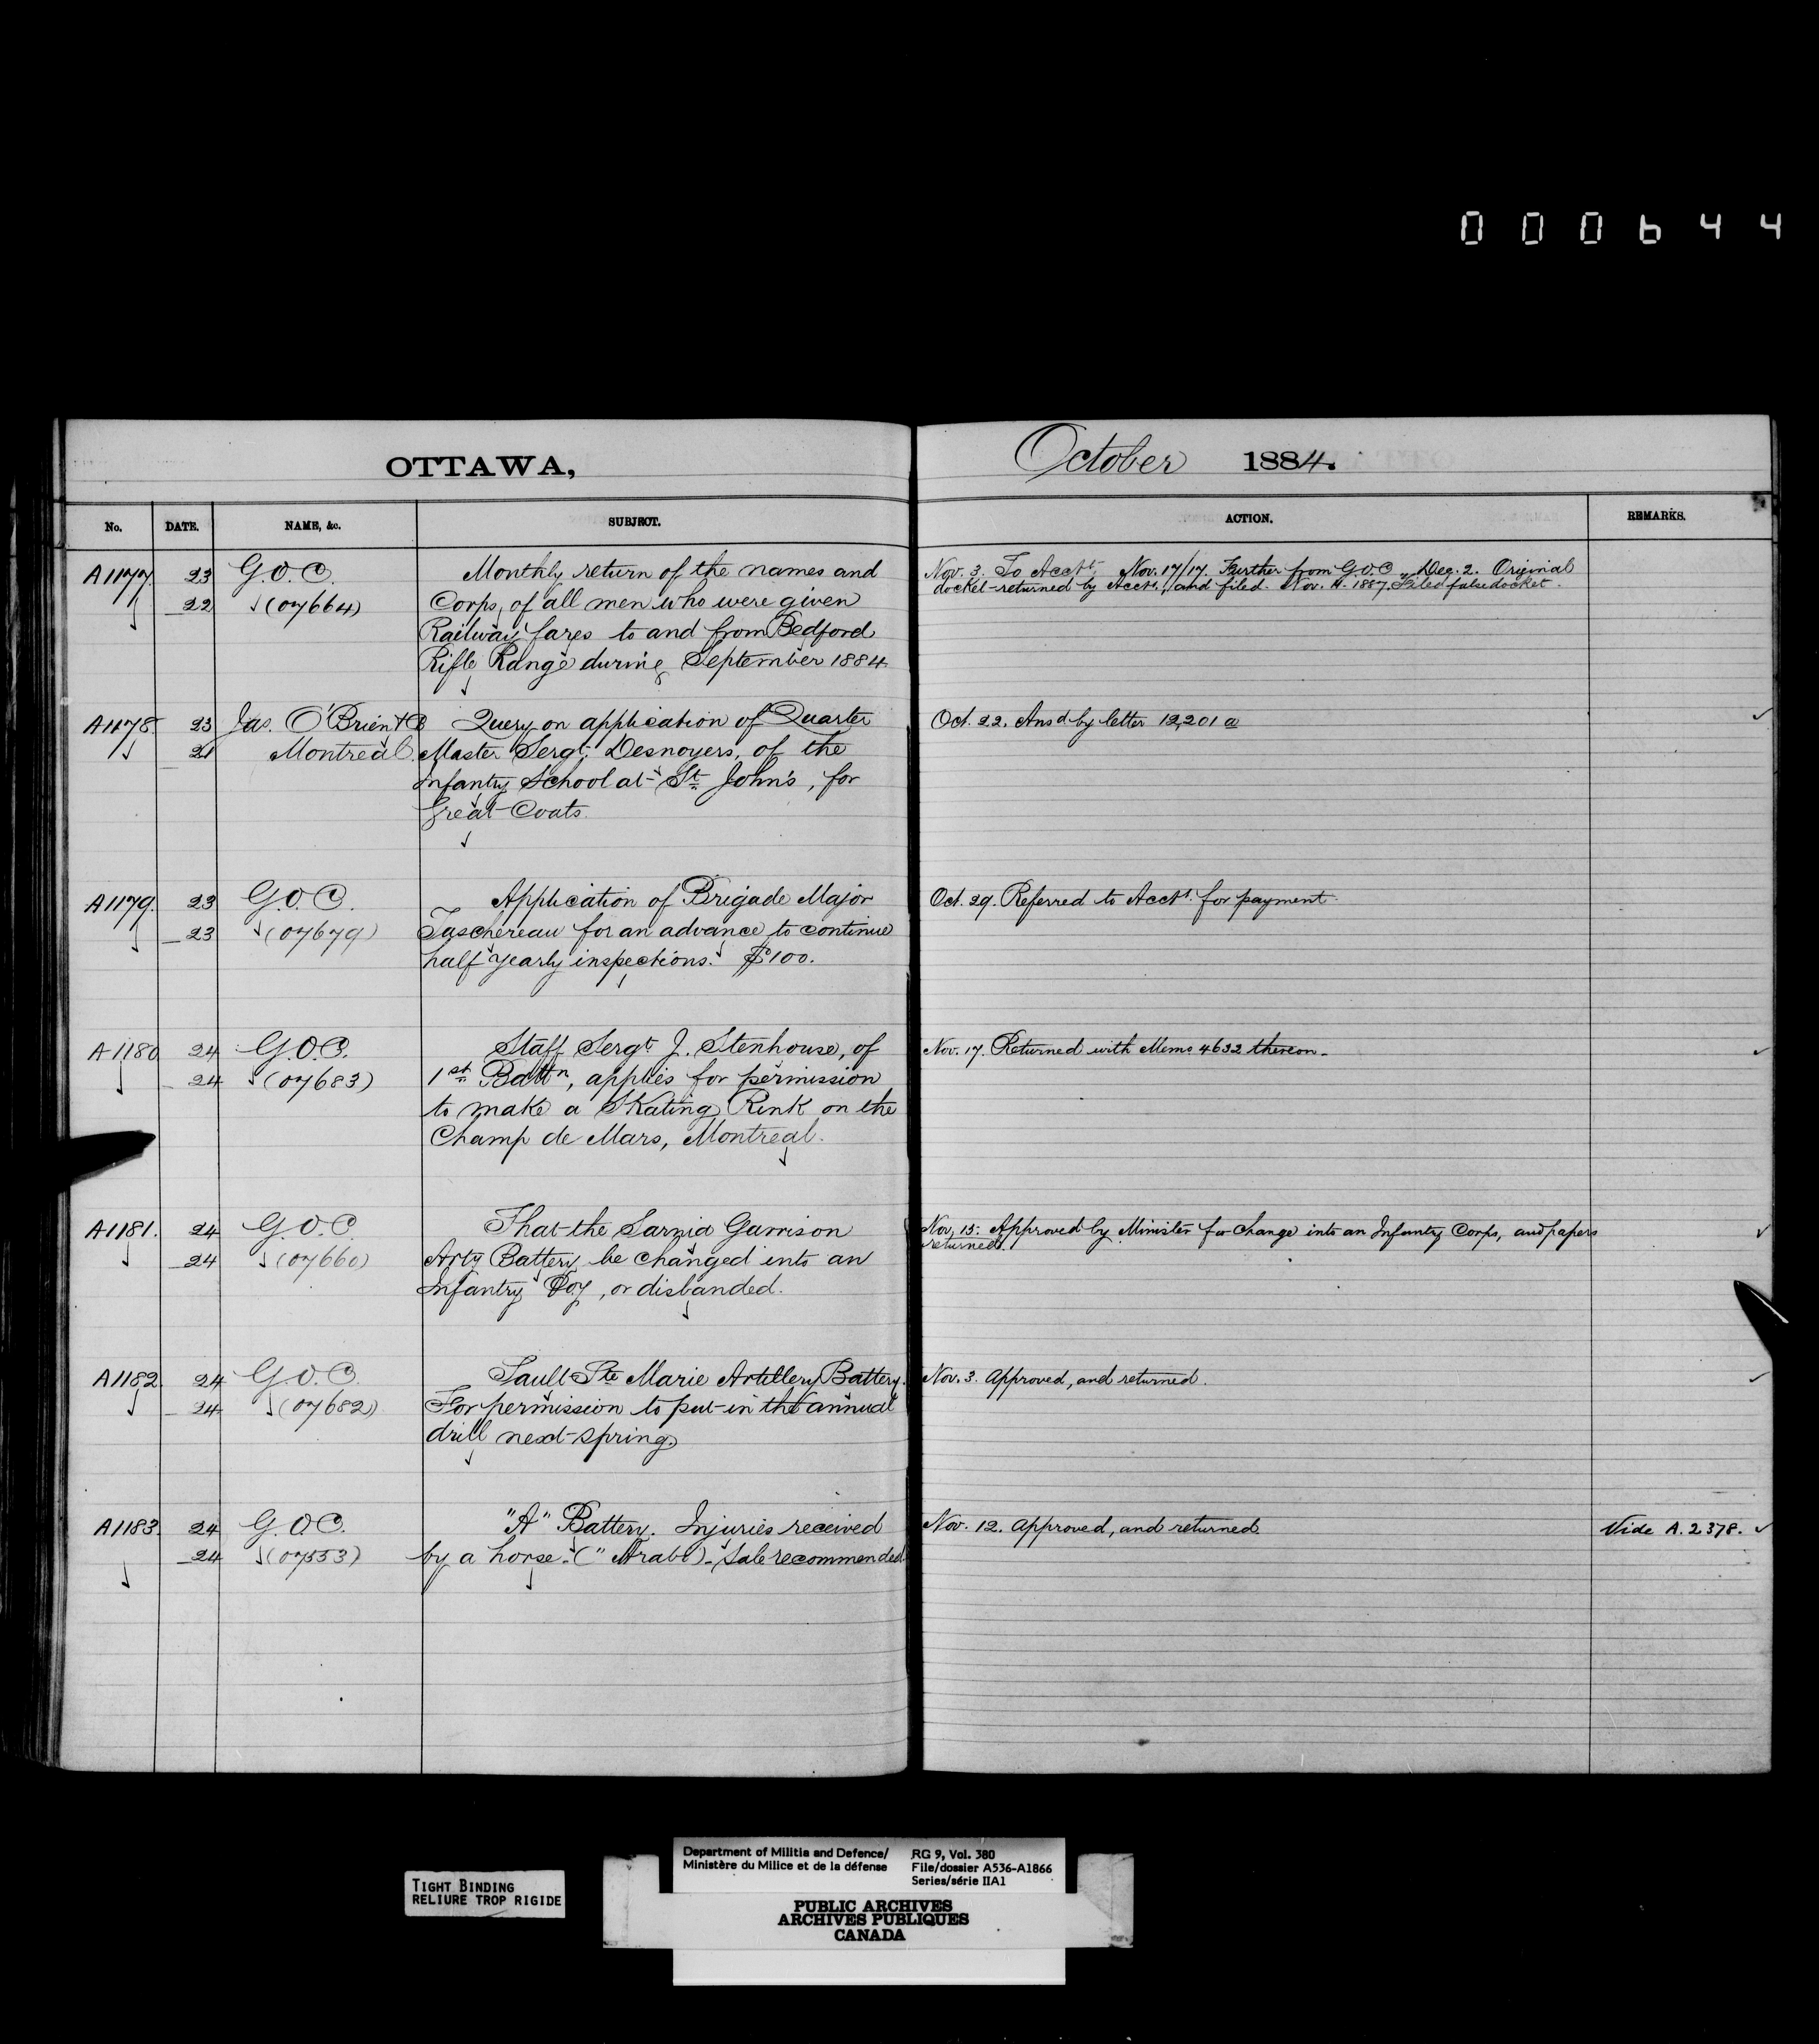 000644
OTTAWA, October 1884.
No. DATE. NAME, &c. SUBJECT. ACTION. REMARKS.
A1177. 23 G.O.C. Monthly return of the names and Nov. 3. To Acctt. Nov. 17/17. Further from G.O.C. Dec. 2. Original
22 (07664) Corps, of all men who were given docket returned by Acctt., and filed. Nov. 1887. Filed false docket.
Railway fares to and from Bedford
Rifle Range during September 1884
A1178. 23 Jas. O'Brien & Co Query on application of Quarter Oct. 22. Ansd by letter 12,201 a
21 Montreal. Master Sergt. Desnoyers, of the
Infantry School at St. John's, for
Great Coats.
A1179. 23 G.O.C. Application of Brigade Major Oct. 29. Referred to Acctt. for payment.
23 (07679) Taschereau for an advance to continue
half yearly inspections. $100.
A1180 24 G.O.C. Staff Sergt J. Stenhouse, of Nov. 17. Returned with Memo 4632 thereon.
24 (07683) 1st Battn, applies for permission
to make a Skating Rink on the
Champ de Mars, Montreal.
A1181. 24 G.O.C. That the Sarnia Garrison Nov. 15. Approved by Minister for change into an Infantry Corps, and papers
returned.
24 (07660) Arty Battery be changed into an
Infantry Coy, or disbanded.
A1182. 24 G.O.C. Sault Ste Marie Artillery Battery. Nov. 3. Approved, and returned.
24 (07682) For permission to put in the annual
drill next spring.
A1183. 24 G.O.C. "A" Battery. Injuries received Nov. 12. Approved, and returned. Vide A.2378.
24 (07553) by a horse. ("Arab") Sale recommended
TIGHT BINDING
RELIURE TROP RIGIDE
Department of Militia and Defence/
Ministère du Milice et de la défense
RG 9, Vol. 380
File/dossier A536-A1866
Series/série IIA1
PUBLIC ARCHIVES
ARCHIVES PUBLIQUES
CANADA